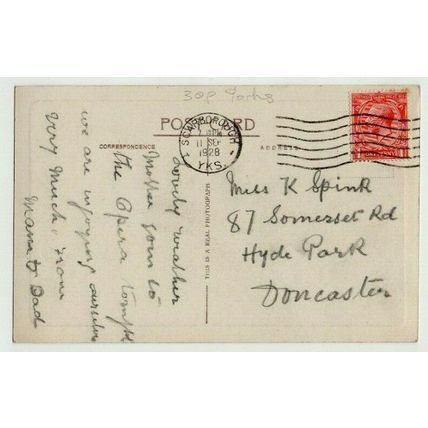 30p Yorks
POSTCARD
SCARBOROUGH
11 SEP
1928
YKS.
CORRESPONDENCE
ADDRESS
THIS IS A REAL PHOTOGRAPH
Lovely weather
Mother goin to
the Opera tonight
we are injoying ourselves
very much. from
Mam & Dad
Miss K Spink
87 Somerset Rd
Hyde Park
Doncaster